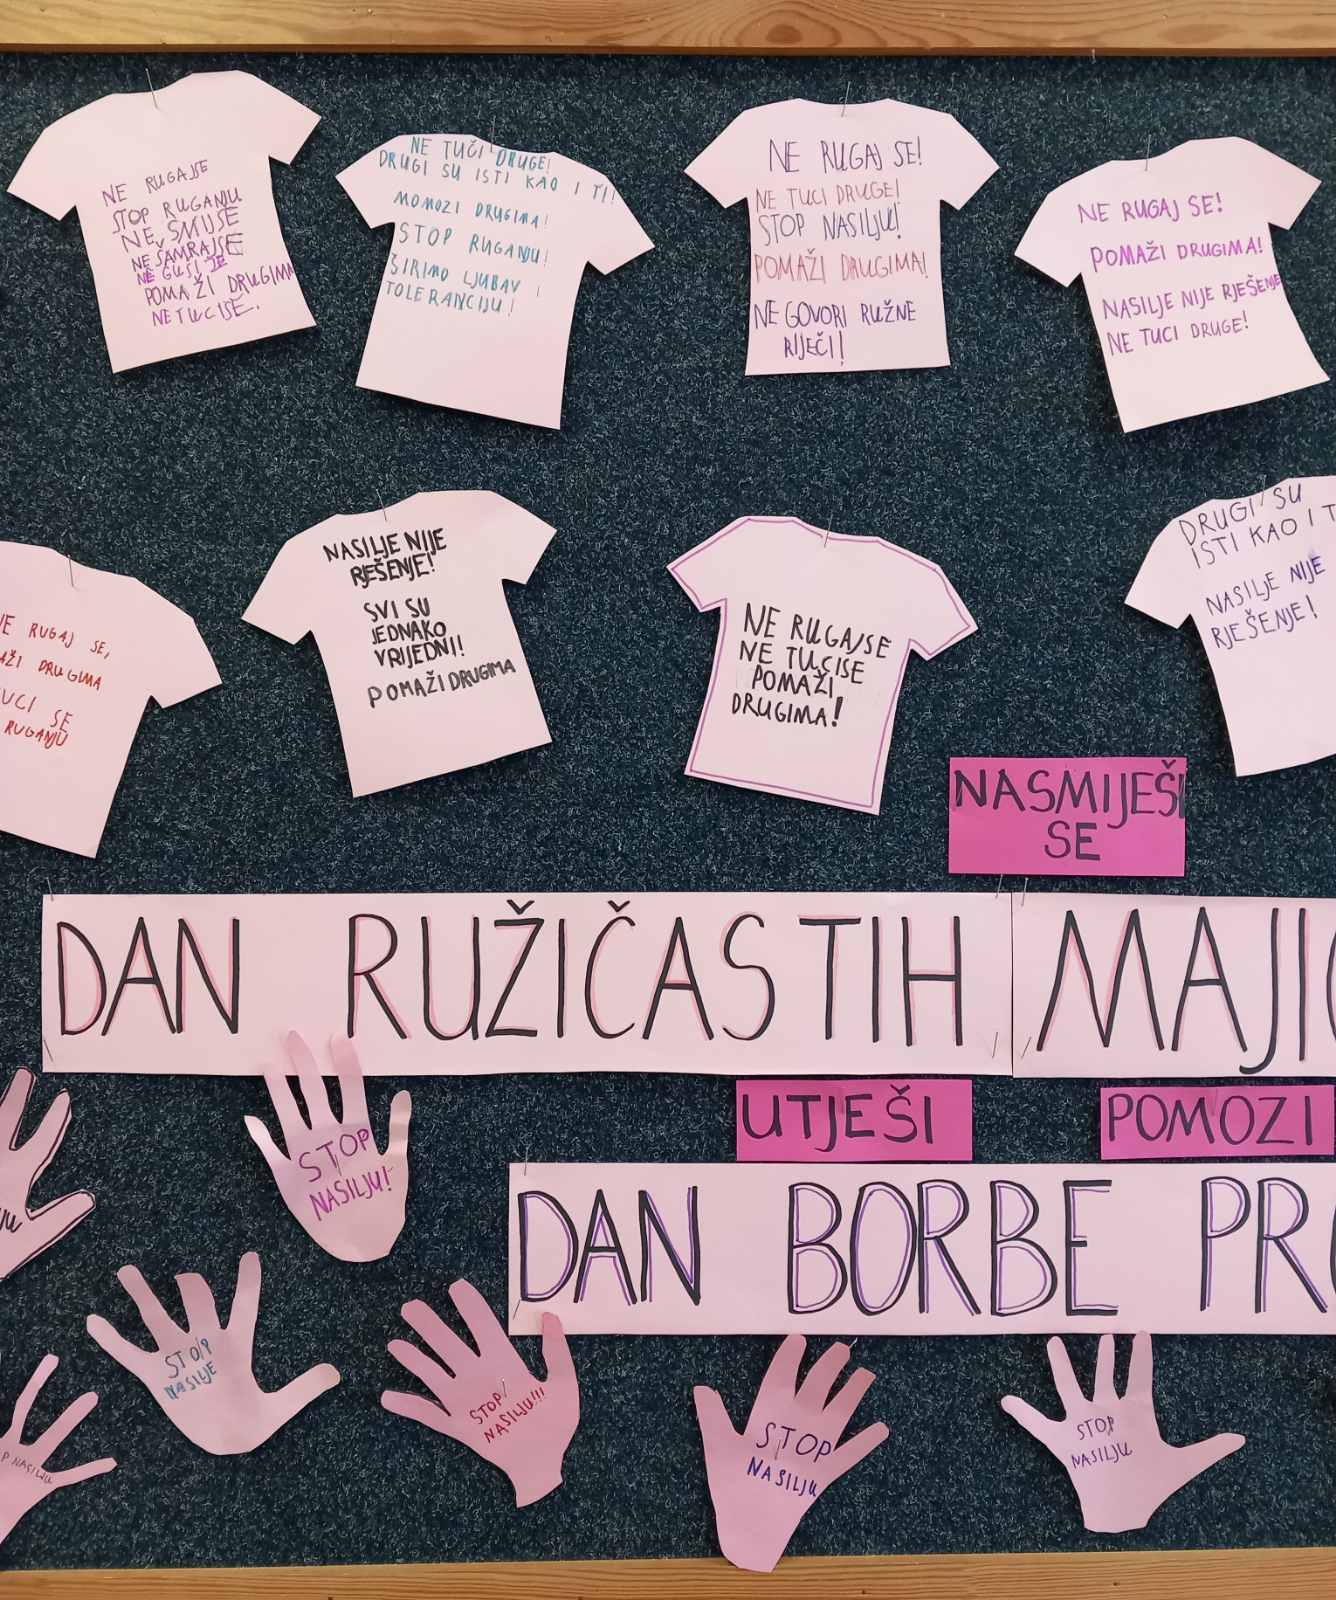 NE RUGAJSE
STOP RUGANJU
NE SMIJSE
NE ŠAMRAJSE
POMAŽI DRUGIMA
NE TUCISE.
NE TUČI DRUGE!
DRUGI SU ISTI KAO I TI!
MOMOZI DRUGIMA!
STOP RUGANJU!
ŠIRIMO LJUBAV I
TOLERANCIJU!
NE RUGAJ SE!
NE TUCI DRUGE!
STOP NASILJU!
POMAŽI DRUGIMA!
NE GOVORI RUŽNE
RIJEČI!
NE RUGAJ SE!
POMAŽI DRUGIMA!
NASILJE NIJE RJEŠENJE
NE TUCI DRUGE!
NE RUGAJ SE,
AŽI DRUGIMA
UCI SE
RUGANJU
NASILJE NIJE
RJEŠENJE!
SVI SU
JEDNAKO
VRIJEDNI!!
POMAŽI DRUGIMA
NE RUGAJSE
NE TUCISE
POMAŽI
DRUGIMA!
DRUGI SU
ISTI KAO I T
NASILJE NIJE
RJEŠENJE!
NASMIJEŠI
SE
DAN RUŽIČASTIH MAJIC
UTJEŠI
POMOZI
DAN BORBE PRO
STOP
NASILJU!
JU
STOP
NASILJE
STOP
NASILJU!!!
STOP
NASILJU
STOP
NASILJU
P NASILJU